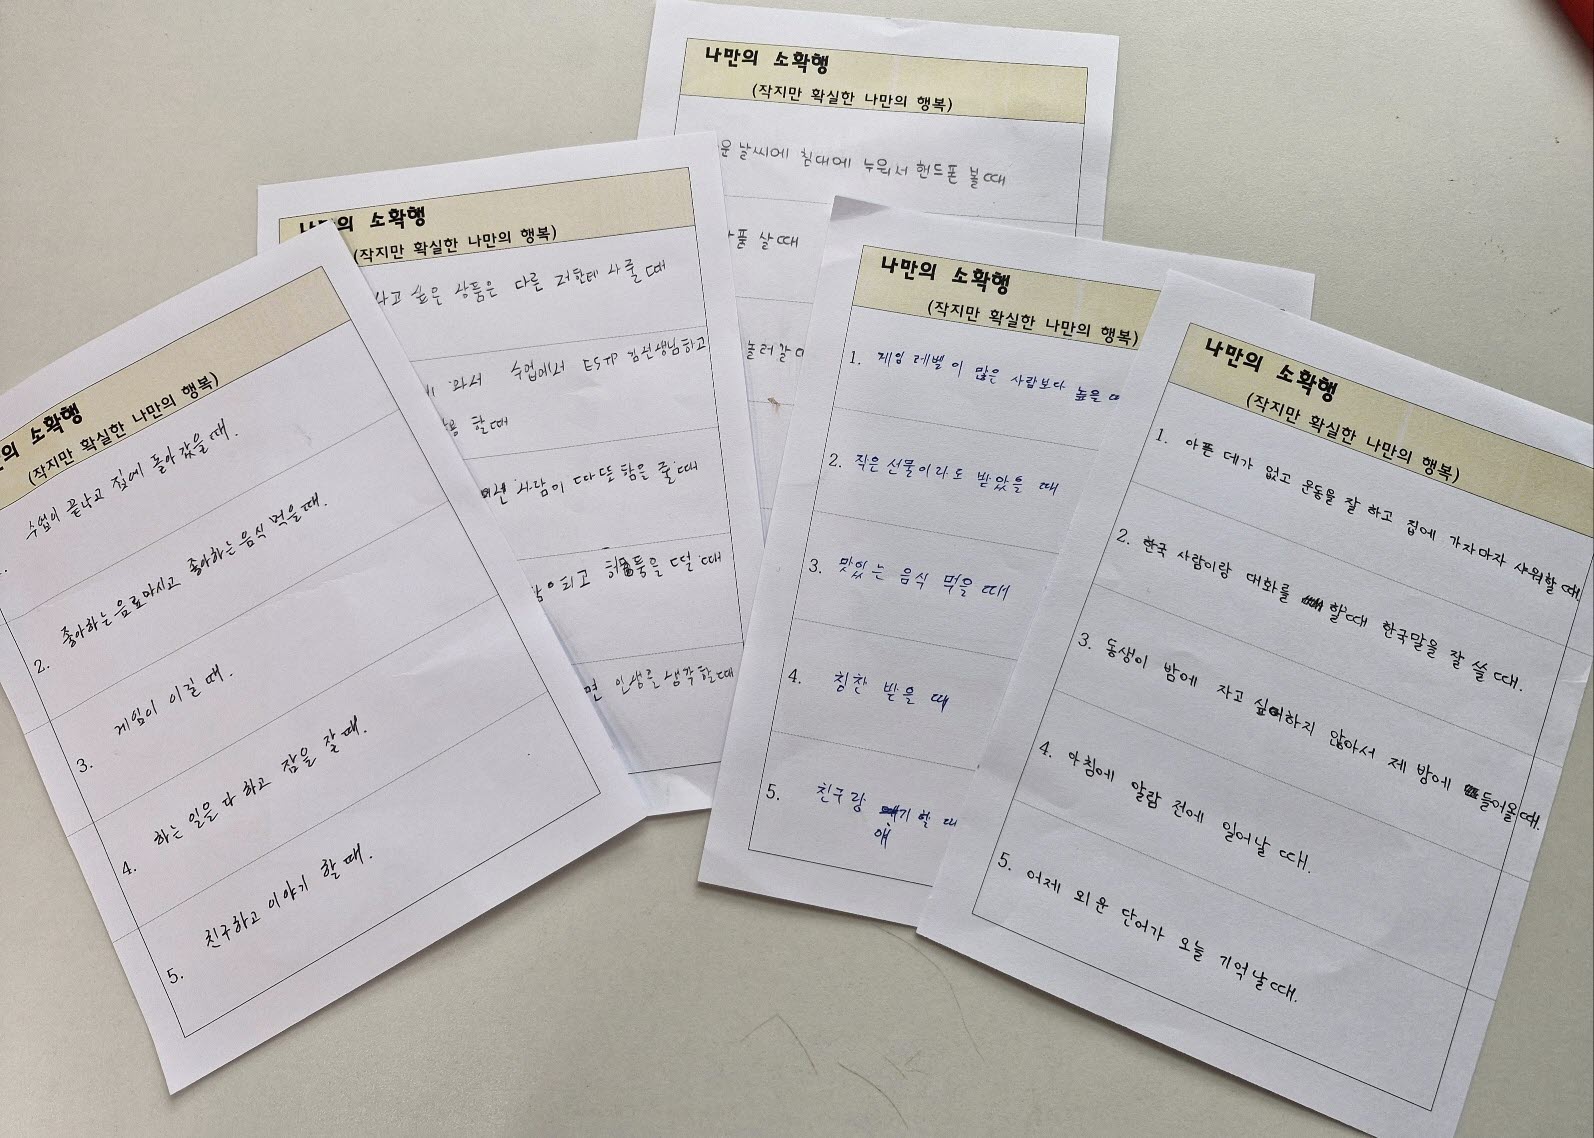 의 소확행
(작지만 확실한 나만의 행복)
수업이 끝나고 집에 돌아갔을 때.
2. 좋아하는 음료마시고 좋아하는 음식 먹을 때.
3. 게임이 이길 때.
4. 하는 일을 다 하고 잠을 잘 때.
5. 친구하고 이야기 할 때.
나만의 소확행
(작지만 확실한 나만의 행복)
싶은 상품은 다른 사줄 때
수업에서 김선생님하고
할때
사람이 따또함은 줄 때
떨 때
면 인생을 생각할때
나만의 소확행
(작지만 확실한 나만의 행복)
날씨에 침대에 누워서 핸드폰 볼 때
살 때
놀러갈
나만의 소확행
(작지만 확실한 나만의 행복)
1. 게임 레벨이 많은 사람보다 높을
2. 작은 선물이라도 받았을 때
3. 맛있는 음식 먹을 때
4. 칭찬 받을 때
5. 친구랑 얘기 할 때
나만의 소확행
(작지만 확실한 나만의 행복)
1. 아픈 데가 없고 운동을 잘 하고 집에 가자마자 샤워할 때
2. 한국 사람이랑 대화를 할 때 한국말을 잘 쓸 때.
3. 동생이 밤에 자고 싶어하지 않아서 제 방에 들어올 때.
4. 아침에 알람 전에 일어날 때.
5. 어제 외운 단어가 오늘 기억날 때.